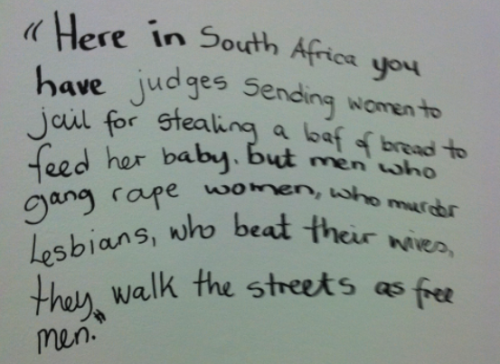 "Here in South Africa you
have judges sending women to
jail for stealing a loaf of bread to
feed her baby. but men who
gang rape women, who murder
Lesbians, who beat their wives,
they walk the streets as free
men."